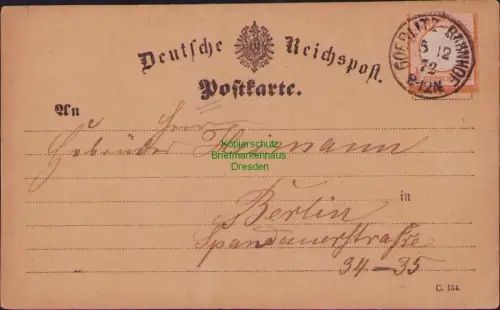 Deutsche Reichspost.
Postkarte.
GOERLITZ-BAHNHOF
6 12
72
An
Herrn
Gebrüder Heymann
Kopierschutz
Briefmarkenhaus
Dresden
in
Berlin
Spandauerstraße
34-35
C. 154.